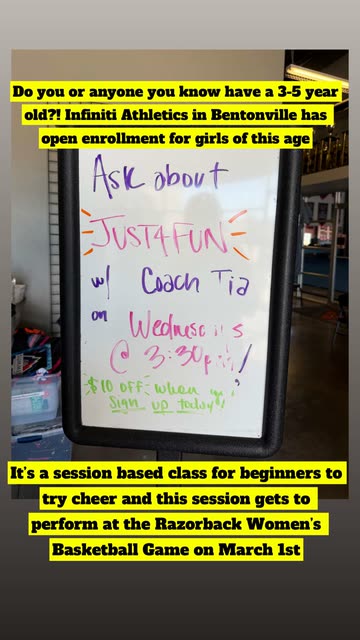 Do you or anyone you know have a 3-5 year
old?! Infiniti Athletics in Bentonville has
open enrollment for girls of this age
Ask about
JUST4FUN
w/ Coach Tia
on Wednesdays
@ 3:30pm!
$10 off when you
sign up today!
It's a session based class for beginners to
try cheer and this session gets to
perform at the Razorback Women's
Basketball Game on March 1st